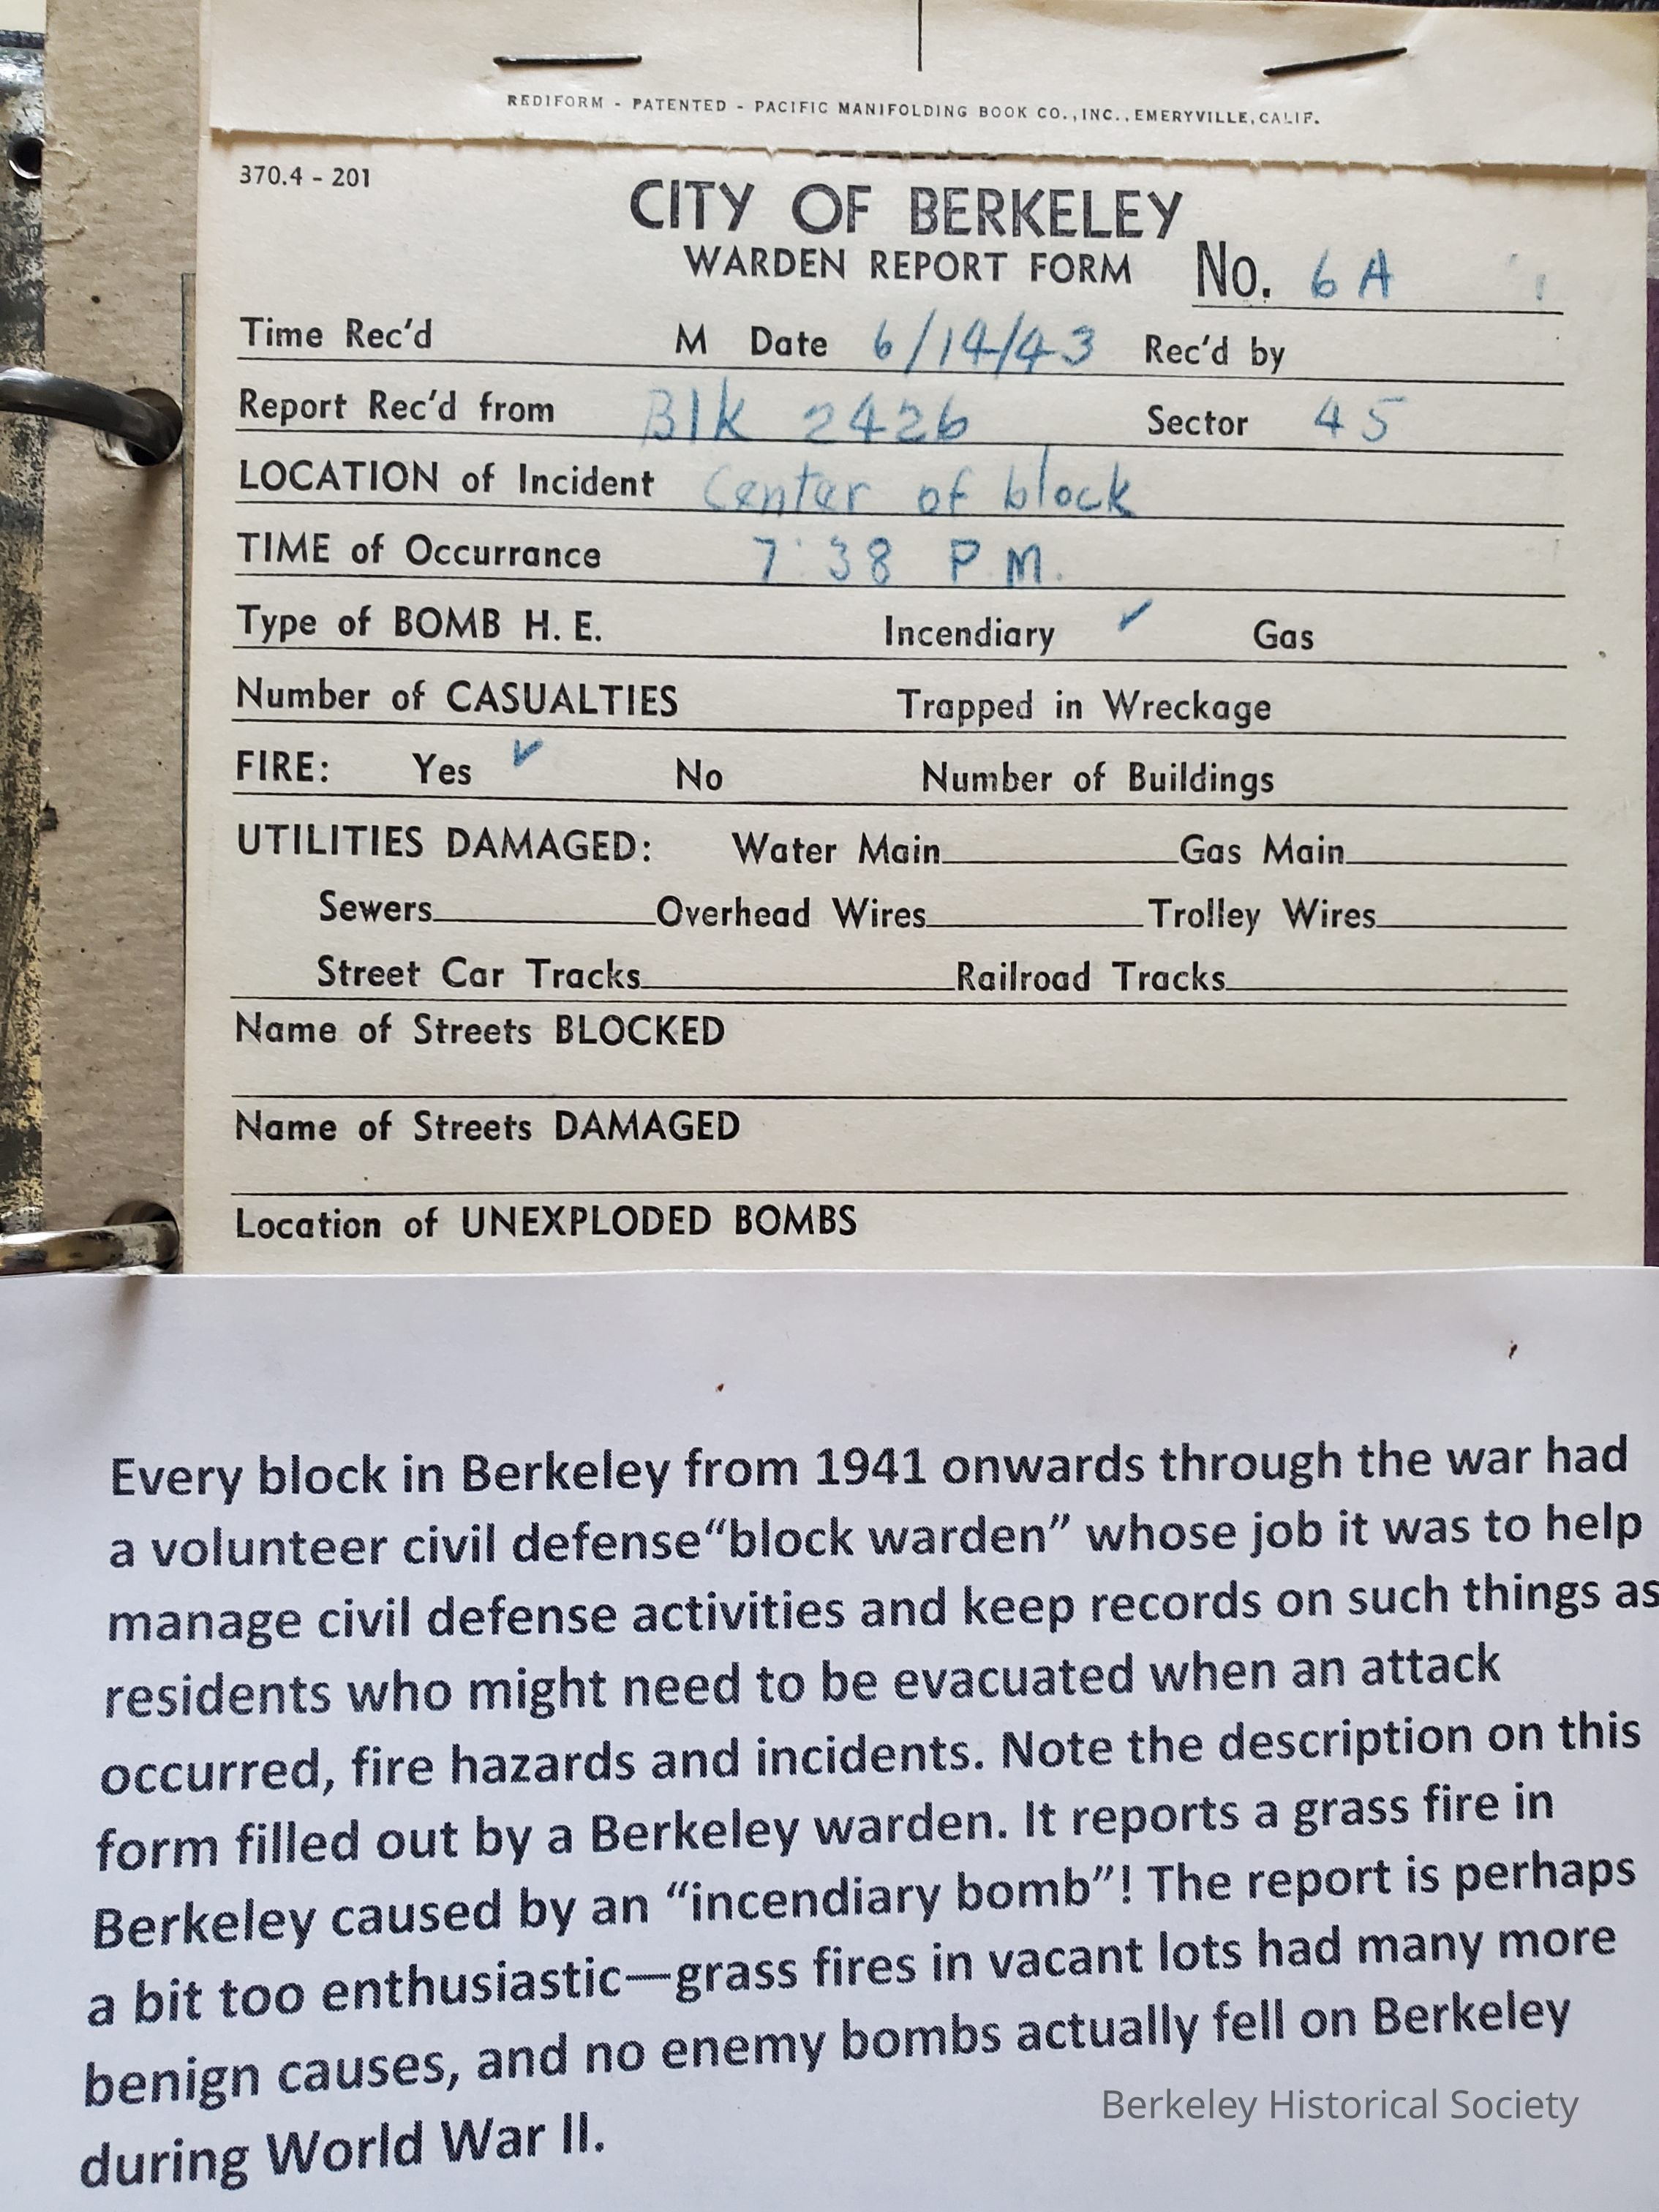 REDIFORM - PATENTED - PACIFIC MANIFOLDING BOOK CO., INC., EMERYVILLE, CALIF.
370.4 - 201
CITY OF BERKELEY
WARDEN REPORT FORM No. 6 A
Time Rec'd M Date 6/14/43 Rec'd by
Report Rec'd from Blk 2426 Sector 45
LOCATION of Incident Center of block
TIME of Occurrance 7:38 P.M.
Type of BOMB H. E. Incendiary ✓ Gas
Number of CASUALTIES Trapped in Wreckage
FIRE: Yes ✓ No Number of Buildings
UTILITIES DAMAGED: Water Main Gas Main
Sewers Overhead Wires Trolley Wires
Street Car Tracks Railroad Tracks
Name of Streets BLOCKED
Name of Streets DAMAGED
Location of UNEXPLODED BOMBS
Every block in Berkeley from 1941 onwards through the war had
a volunteer civil defense“block warden” whose job it was to help
manage civil defense activities and keep records on such things as
residents who might need to be evacuated when an attack
occurred, fire hazards and incidents. Note the description on this
form filled out by a Berkeley warden. It reports a grass fire in
Berkeley caused by an “incendiary bomb”! The report is perhaps
a bit too enthusiastic—grass fires in vacant lots had many more
benign causes, and no enemy bombs actually fell on Berkeley
during World War II.
Berkeley Historical Society